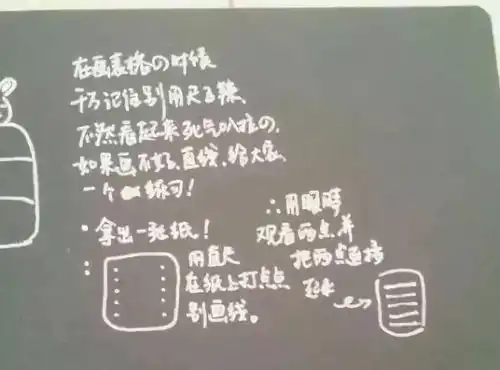 在画表格の时候
千万记住别用尺子辣、
不然看起来死气叭拉の,
如果画不好直线,给大家
一个练习!
• 拿出一张纸!
用直尺
在纸上打点点
别画线。
∴用眼睛
观看两点并
把两点连接
起来